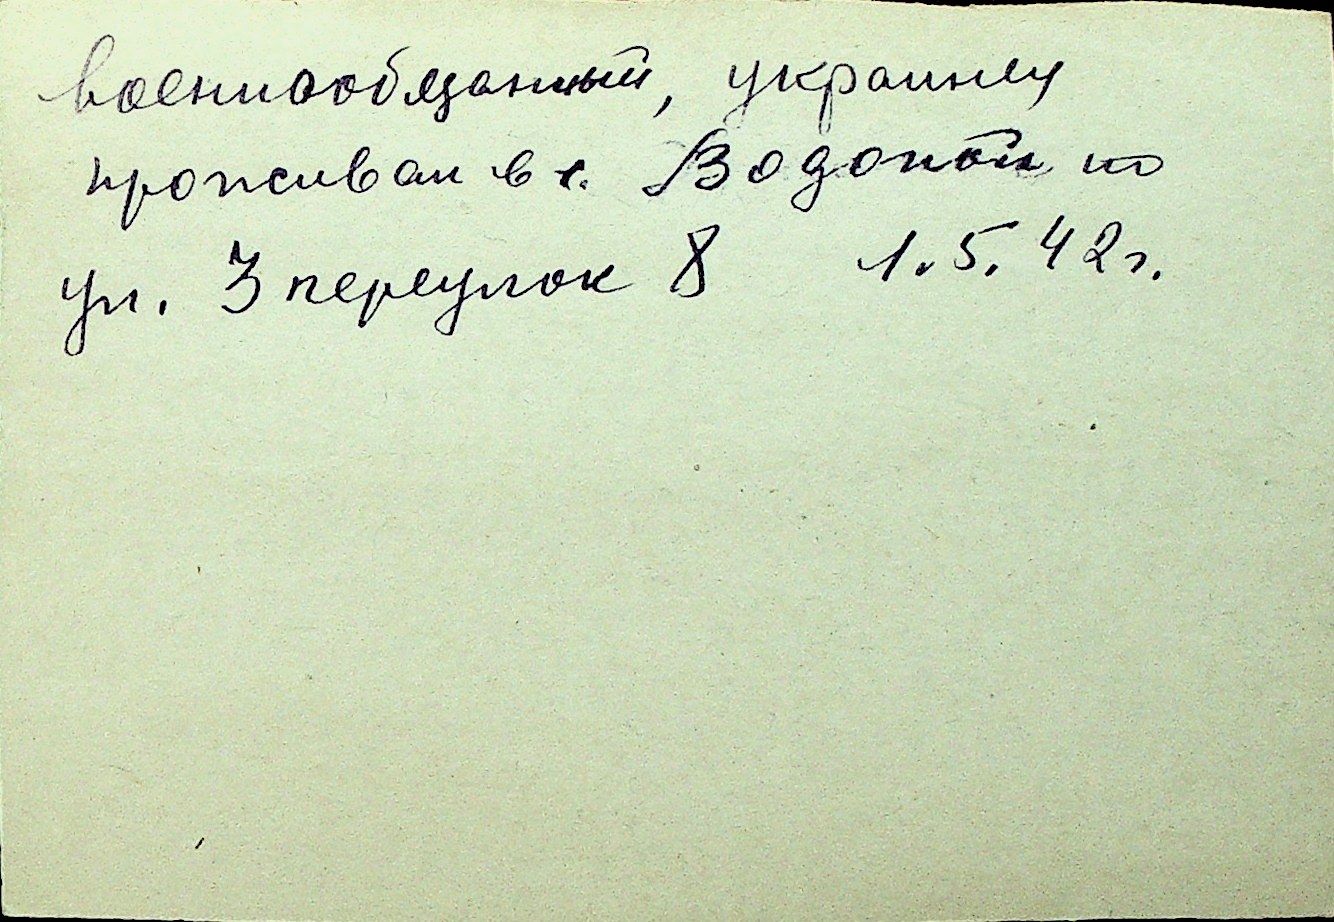 военнообязанный, украинец
проживал в с. Водопой по
ул. 3 переулок 8 1.5.42г.